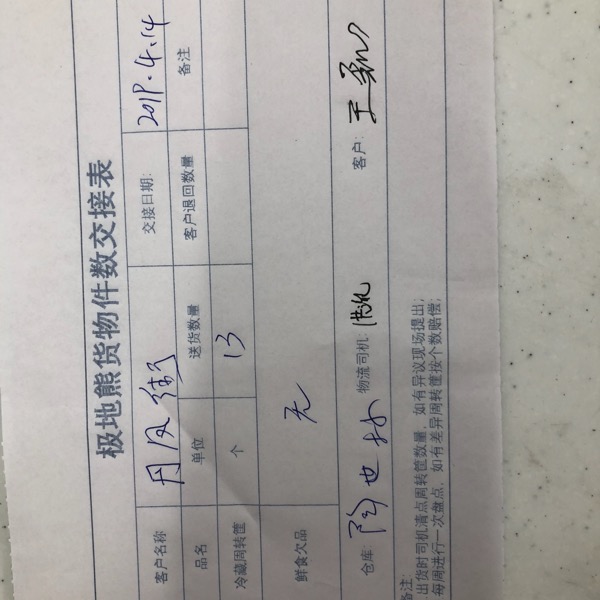 极地熊货物件数交接表
客户名称 交接日期: 2019.4.14
品名 单位 送货数量 客户退回数量 备注
冷藏周转筐 个 13
鲜食欠品 无
仓库: 物流司机 客户:
备注
出货时司机清点周转筐数量,如有异议现场提出;
每周进行一次盘点,如有差异周转筐按个数赔偿;